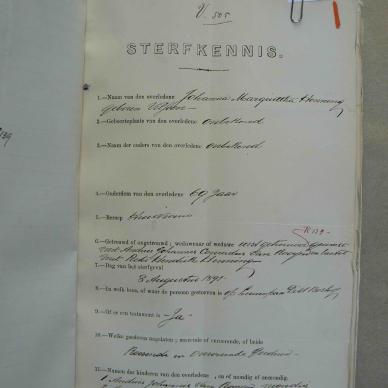 V. 505
STERFKENNIS.
1.—Naam van den overledene Johanna Margrietha Henning
geboren
2.—Geboorteplaats van den overledene Onbekend
3.—Namen der ouders van den overledene Onbekend
4.—Ouderdom van den overledene 69 Jaar
5.—Beroep Huisvrouw
R 139
6.—Getrouwd of ongetrouwd; weduwnaar of weduwe
met Andries Johannes van
Hendrik Henning
7.—Dag van het sterfgeval
8 Augustus 1891
8.—In welk huis, of waar de persoon gestorven is op
9.—Of er een testament is Ja
10.—Welke goederen nagelaten; roerende of onroerende, of beide
Roerende en onroerende Goederen
11.—Namen der kinderen van den overledene, en of mondig of onmondig.
1 Andries Johannes van
139